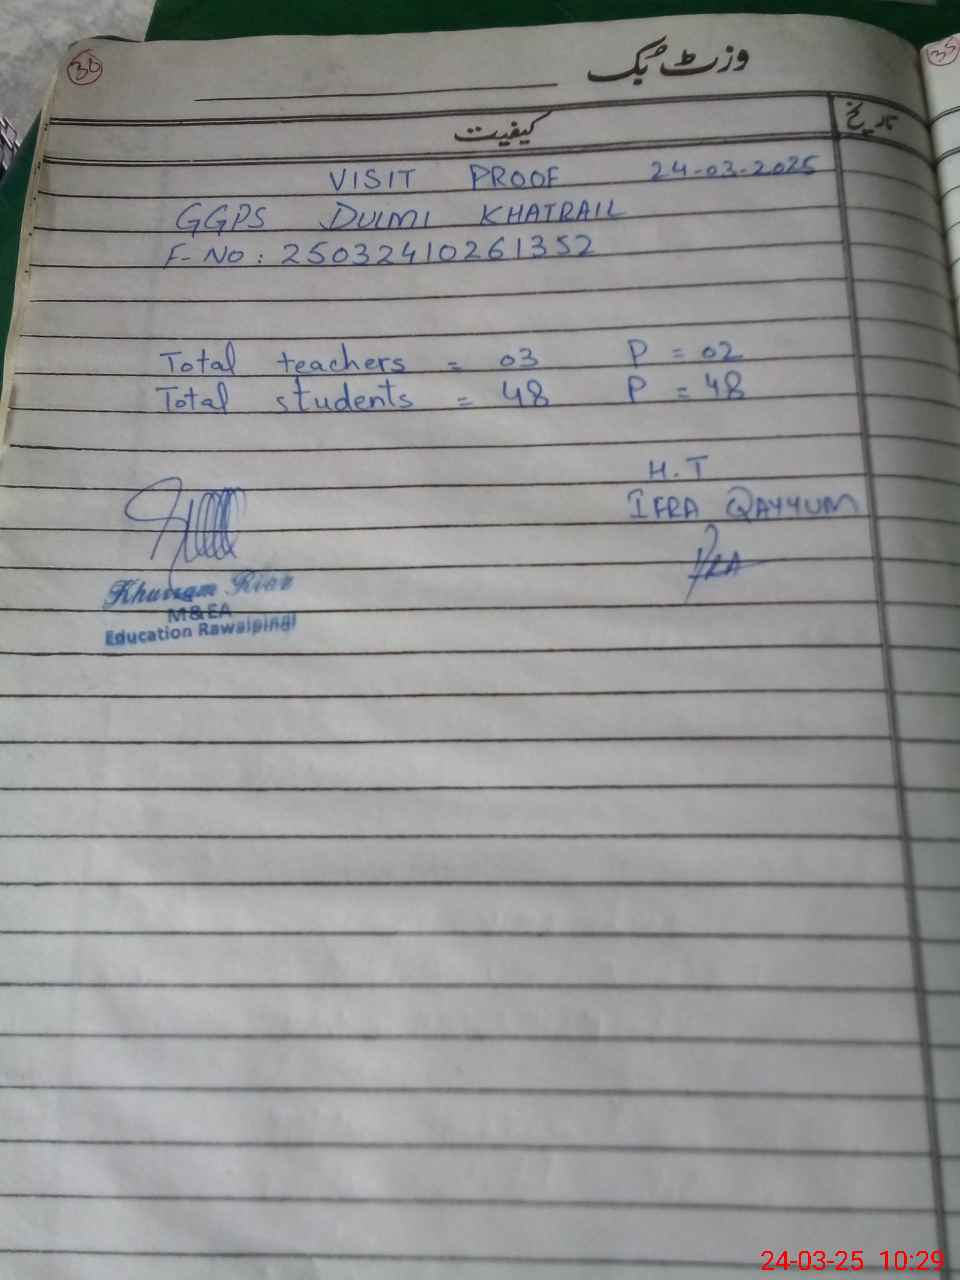 36
35
وزٹ بک
کیفیت
تاریخ
VISIT PROOF 24-03-2025
GGPS DULMI KHATRAIL
F-NO: 25032410261352
Total teachers = 03 P = 02
Total students = 48 P = 48
H.T
IFRA QAYYUM
Khurram Riaz
M&EA
Education Rawalpindi
24-03-25 10:29